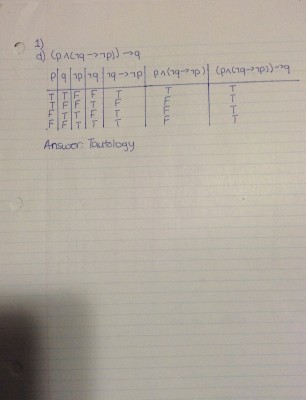 1)
d) (p∧(¬q→¬p))→q
p q ¬p ¬q ¬q→¬p p∧(¬q→¬p) (p∧(¬q→¬p))→q
T T F F T T T
T F F T F F T
F T T F T F T
F F T T T F T
Answer: Tautology